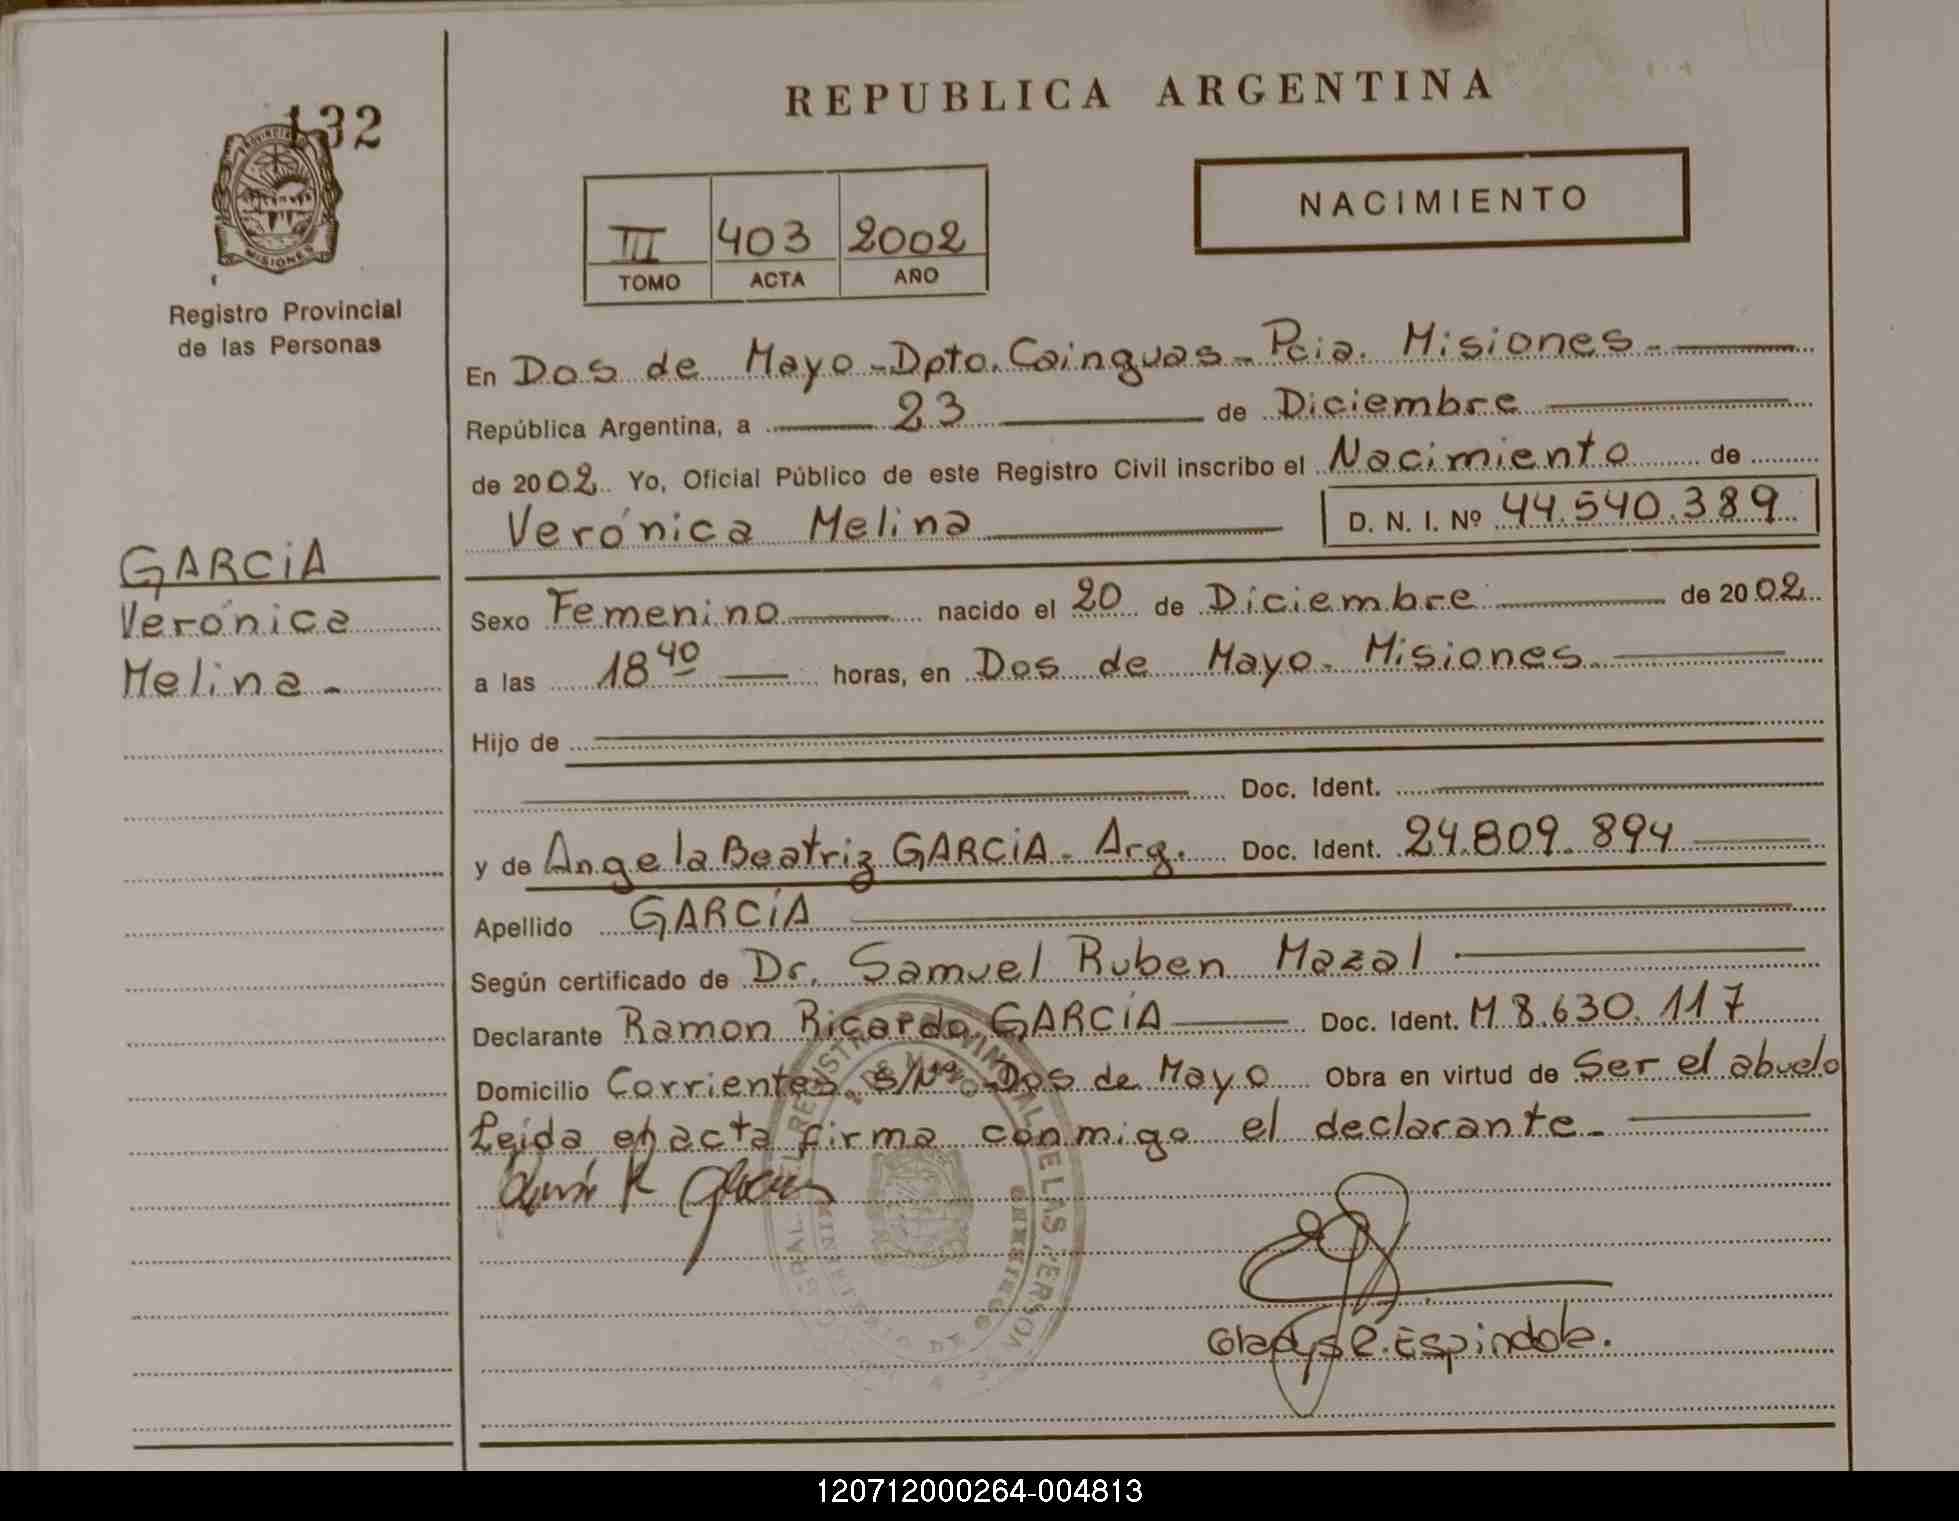 132
PROVINCIA
MISIONES
Registro Provincial
de las Personas
GARCíA
Verónica
Melina.-
REPUBLICA ARGENTINA
NACIMIENTO
III 403 2002
TOMO ACTA AÑO
En Dos de Mayo - Dpto. Cainguas - Pcia. Misiones.-
República Argentina, a 23 de Diciembre
de 2002. Yo, Oficial Público de este Registro Civil inscribo el Nacimiento de
Verónica Melina D. N. I. Nº 44.540.389
Sexo Femenino nacido el 20 de Diciembre de 2002
a las 18 40 horas, en Dos de Mayo. Misiones.
Hijo de
Doc. Ident.
y de Angela Beatriz GARCiA - Arg. Doc. Ident. 24.809.894
Apellido GARCíA
Según certificado de Dr. Samuel Ruben Mazal
Declarante Ramon Ricardo GARCíA Doc. Ident. M 8.630.117
Domicilio Corrientes s/Nº Dos de Mayo Obra en virtud de Ser el abuelo
Leida el acta firma conmigo el declarante.-
Gladys R. Espindola.
120712000264-004813